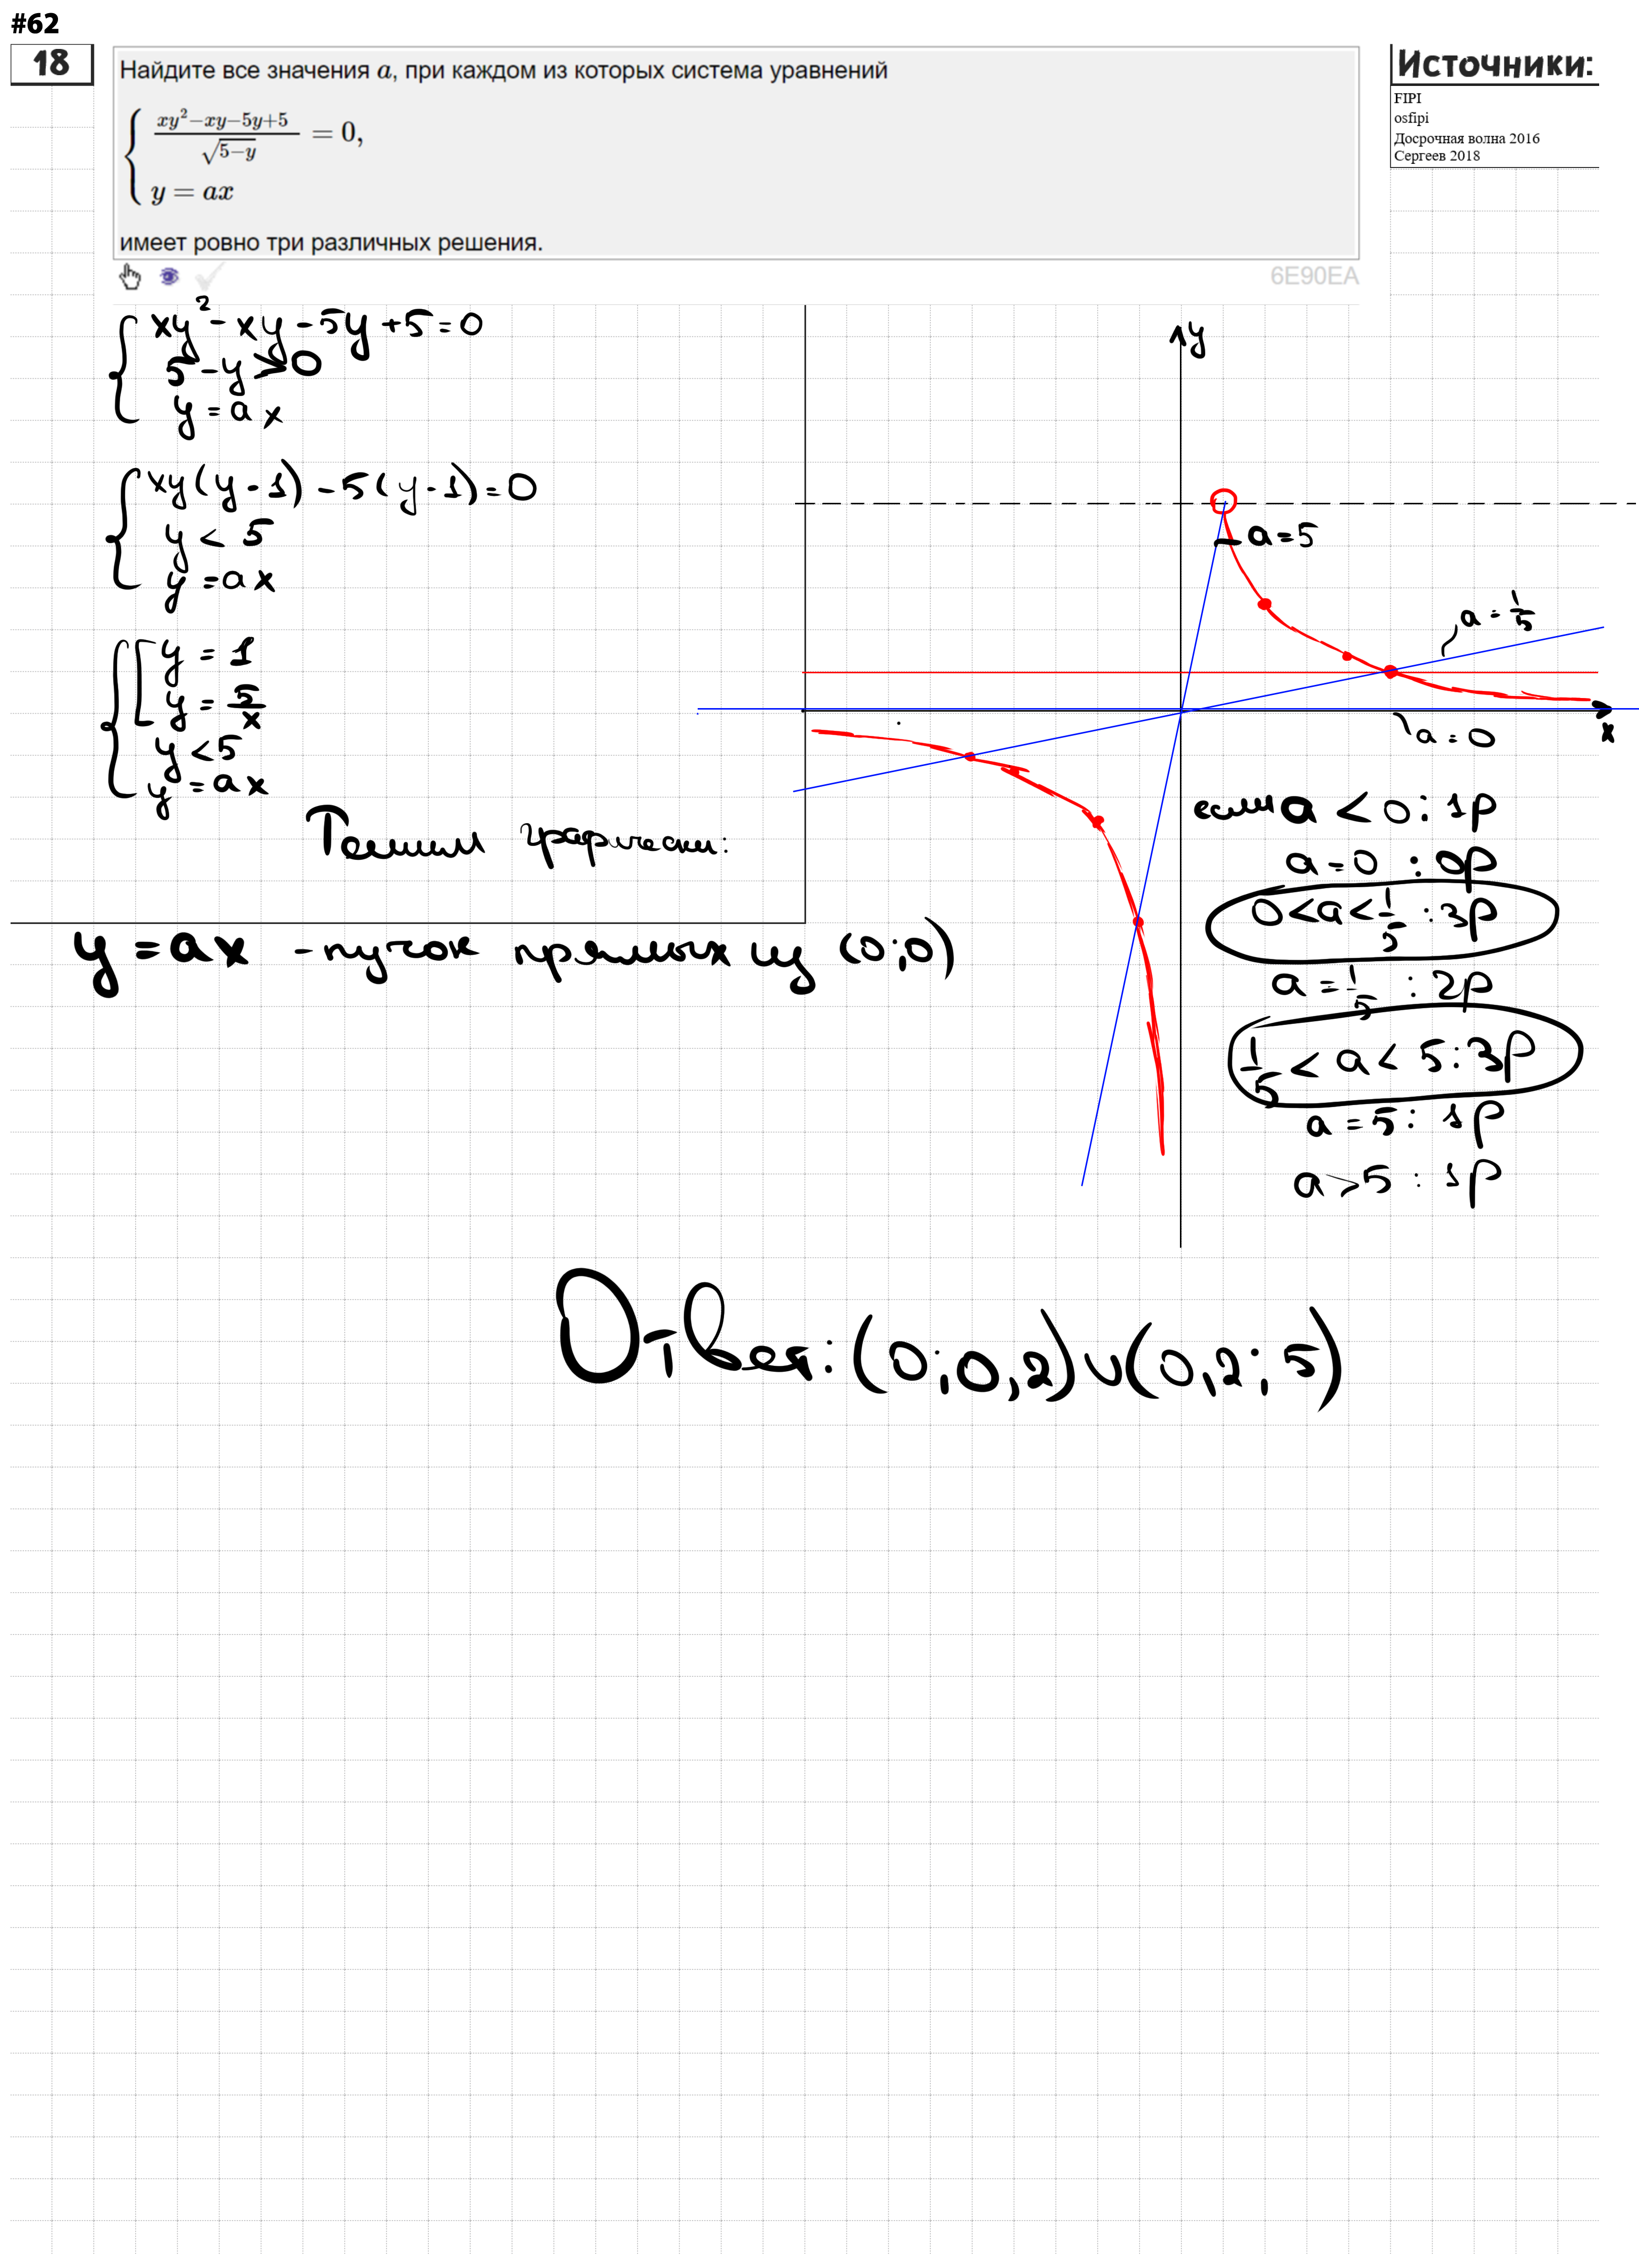 #62
18
Найдите все значения a, при каждом из которых система уравнений
{ (xy² − xy − 5y + 5) / √(5−y) = 0,
y = ax
имеет ровно три различных решения.
6E90EA
Источники:
FIPI
osfipi
Досрочная волна 2016
Сергеев 2018
{ xy² - xy - 5y + 5 = 0
5 - y > 0
y = ax
{ xy(y - 1) - 5(y - 1) = 0
y < 5
y = ax
{ [ y = 1
y = 5/x
y < 5
y = ax
Решим графически:
y = ax - пучок прямых из (0;0)
y
a = 5
a = 1/5
a = 0
x
если a < 0 : 1р
a = 0 : 0р
0 < a < 1/5 : 3р
a = 1/5 : 2р
1/5 < a < 5 : 3р
a = 5 : 1р
a > 5 : 1р
Ответ: (0; 0,2) ∪ (0,2; 5)